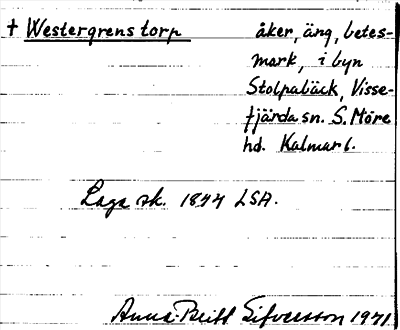 † Westergrens torp åker, äng, betes-
mark, i byn
Stolpabäck, Visse-
fjärda sn. S. Möre
hd. Kalmar l.
Laga sk. 1844 LSA.
Anna-Britt Sifversson 1971